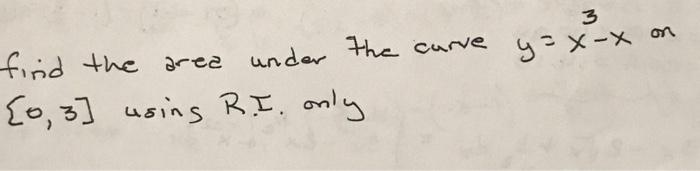 find the area under the curve y = x³-x on
[0,3] using R.I. only